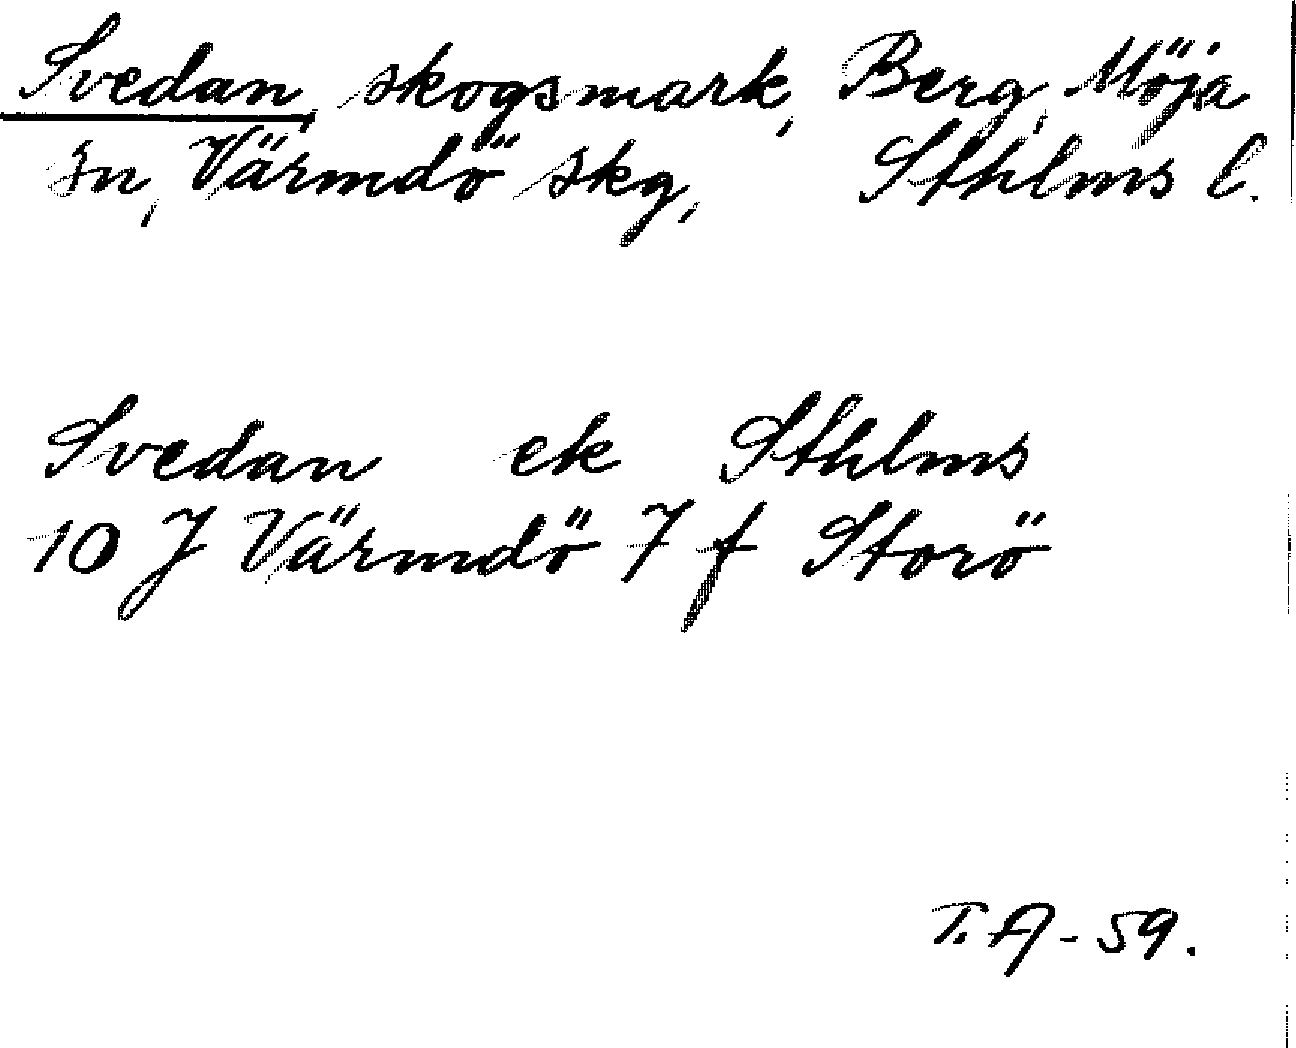 Svedan, skogsmark, Berg, Möja
sn, Värmdö skg, Sthlms l.
Svedan ek Sthlms
10 J Värmdö 7 f Storö
T. A - 59.